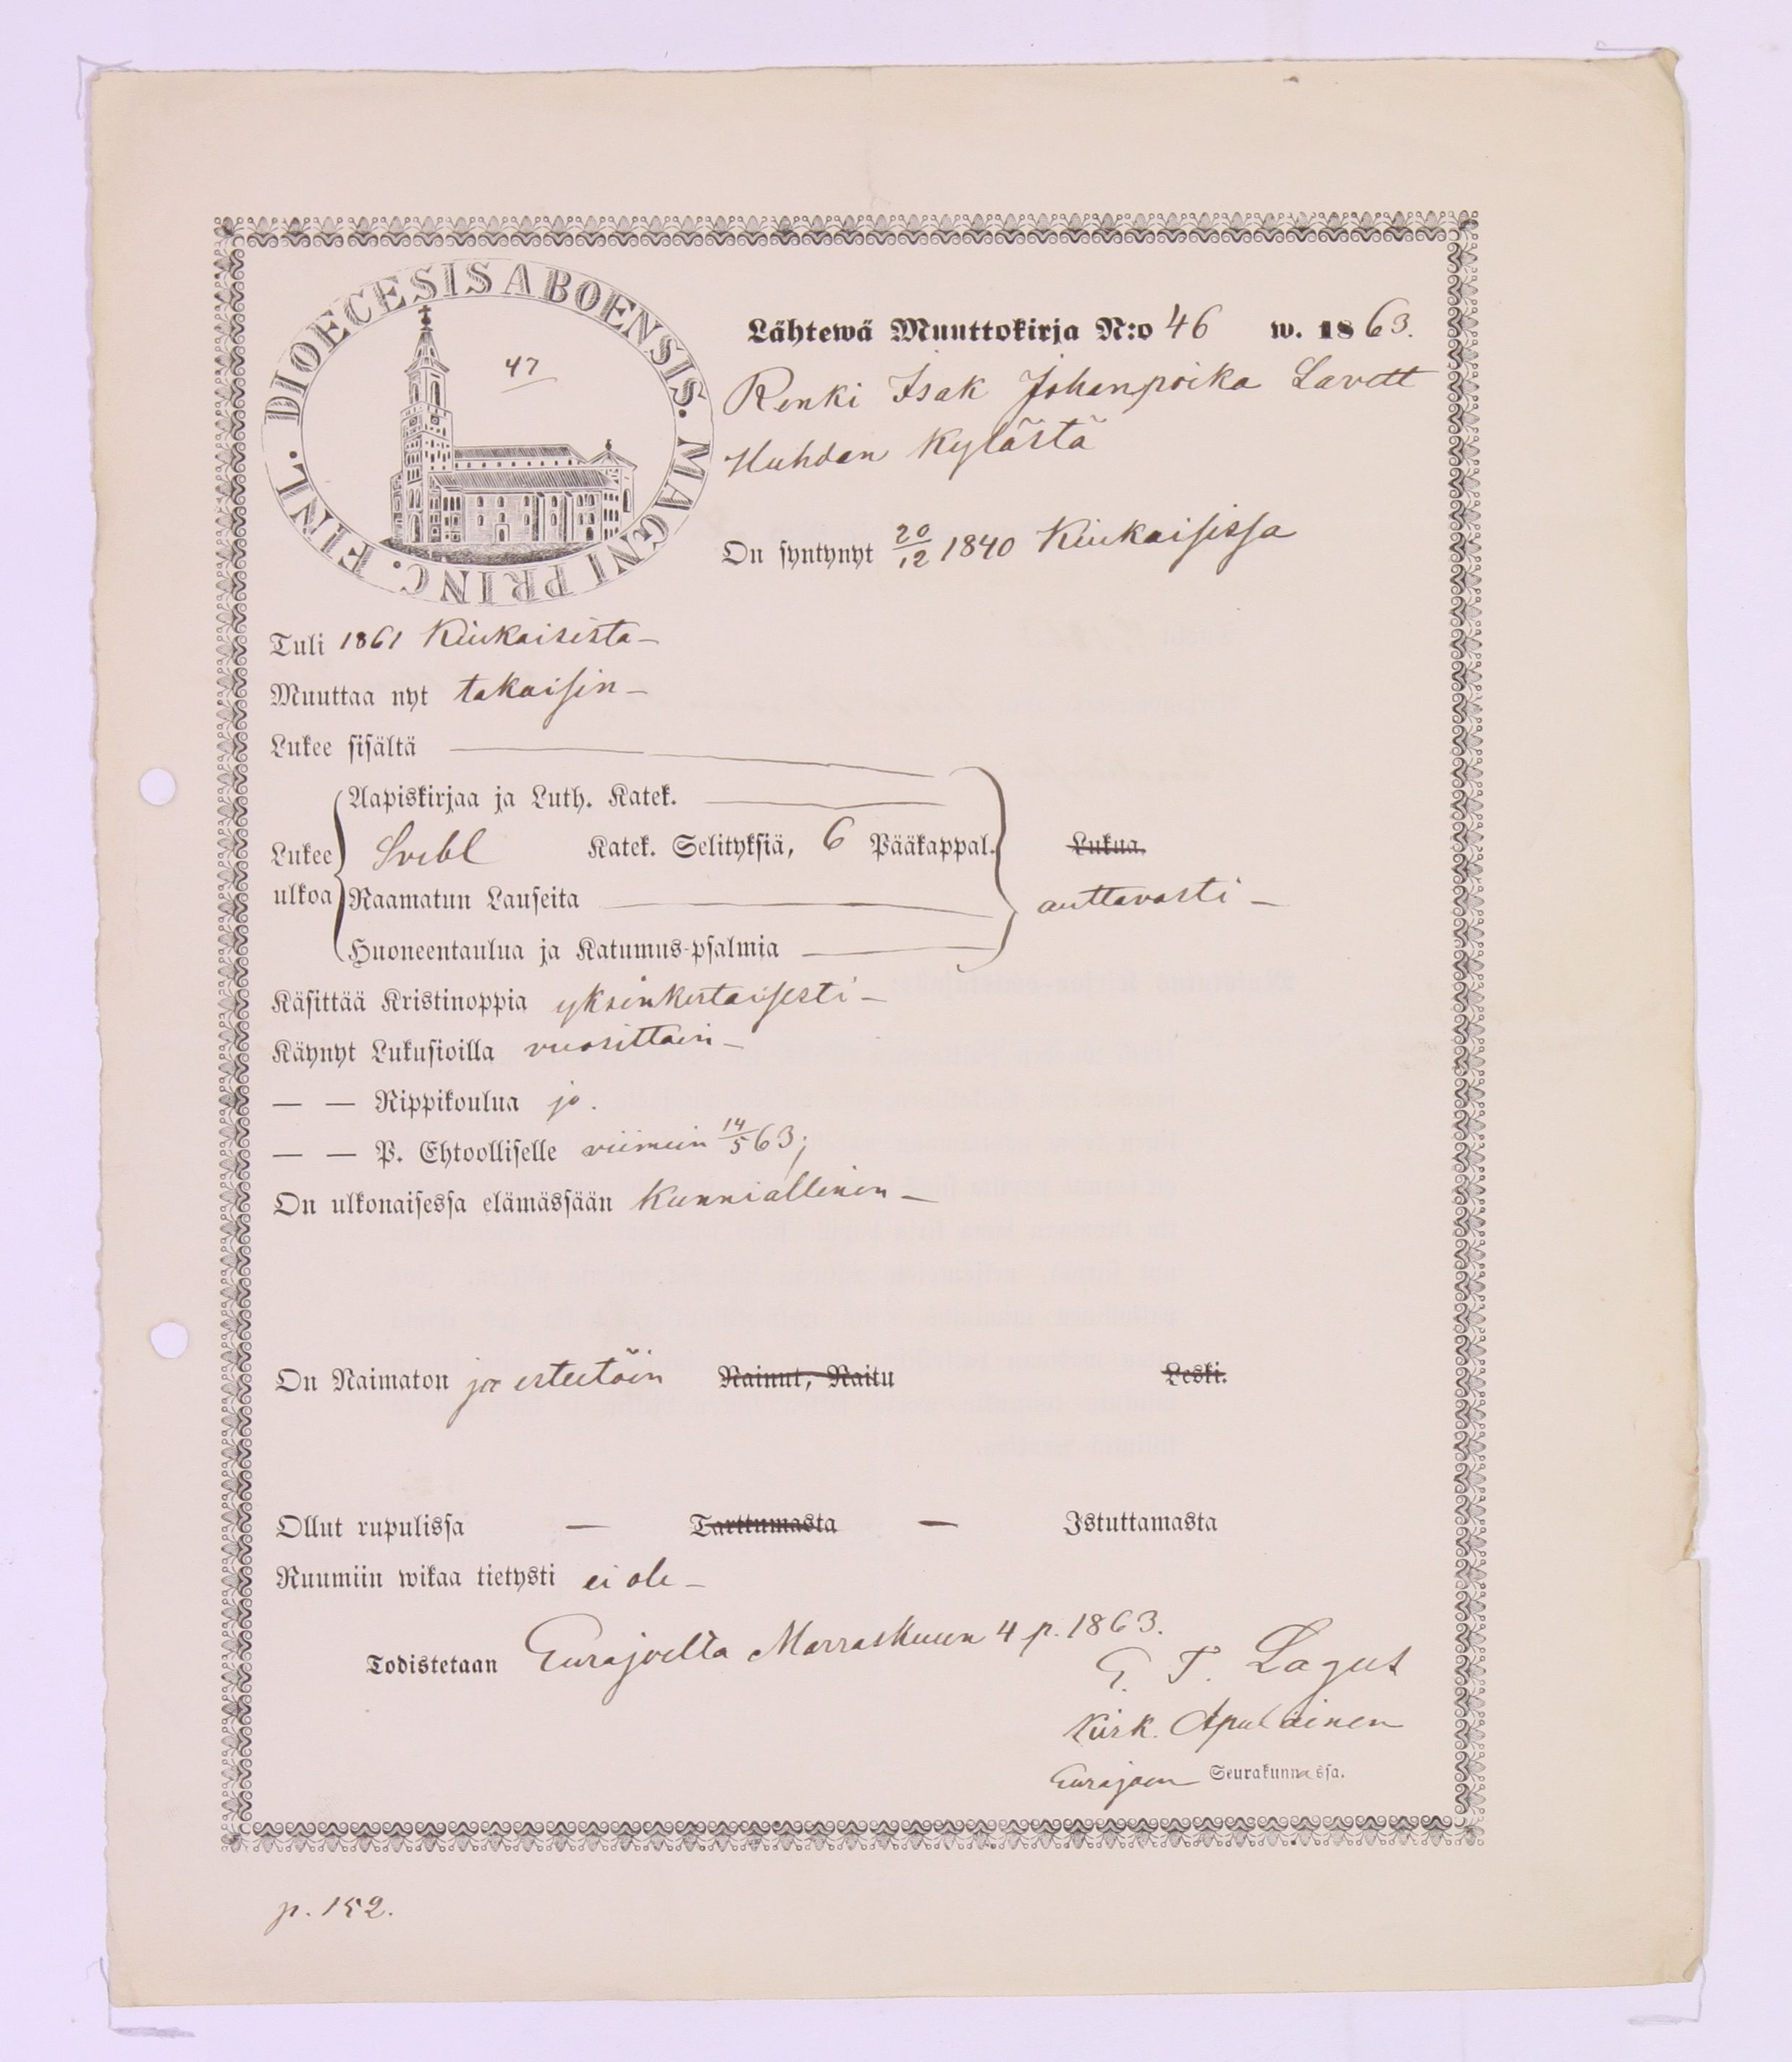 DIOECESIS ABOENSIS. MAGNI PRINC. FINL.
47
Lähtewä Muuttokirja N:o 46 w. 1863.
Renki Isak Johanpoika Lavett
Huhdan kylästä
On syntynyt 20/12 1840 Kiukaisissa
Tuli 1861 Kiukaisista –
Muuttaa nyt takaisin –
Lukee sisältä
Aapiskirjaa ja Luth. Katek.
Lukee ulkoa
Svebl Katek. Selityksiä, 6 Pääkappal. Lukua.
Raamatun Lauseita
auttavasti –
Huoneentaulua ja Katumus-psalmia
Käsittää Kristinoppia yksinkertaisesti –
Käynyt Lukusioilla vuosittain –
— — Rippikoulua jo.
— — P. Ehtoolliselle viimein 14/5 63;
On ulkonaisessa elämässään kunniallinen –
On Naimaton ja esteetöin Nainut, Naitu Leski.
Ollut rupulissa — Tarttumasta — Istuttamasta
Ruumiin wikaa tietysti ei ole –
Todistetaan Eurajoella Marraskuun 4 p. 1863.
E. T. Lagus
Kirk. Apulainen
Eurajoen Seurakunnassa.
p. 152.